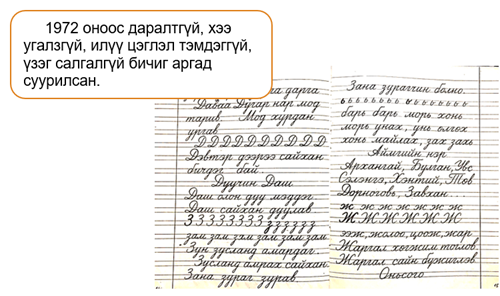 1972 оноос даралтгүй, хээ
угалзгүй, илүү цэглэл тэмдэггүй,
үзэг салгалгүй бичиг аргад
суурилсан.
дарга
Даваа Дугар нар мод
тарив. Мод хурдан
ургав
Д Д Д Д Д Д Д Д Д Д
Дэвтэр дээрээ сайхан
бичдэг бай
Дуучин Даш
Даш олон дуу мэддэг.
Даш сайхан дуулав
З З З З З З З З з з з з з з
зам зам зам зам зам зам
Зун зусланд амардаг.
Зусланд амрах сайхан.
Зана зураг зурав.
Зана зурагчин болно.
ь ь ь ь ь ь ь ь ь ь ь ь ь ь ь ь
барь барь морь хонь
морь унах, унь өлгөх
хонь майлах, зах захь
Аймгийн нэр
Архангай, Булган, Увс
Сэлэнгэ, Хэнтий, Төв
Дорноговь, Завхан...
ж ж ж ж ж ж ж
Ж Ж Ж Ж Ж Ж Ж
ээж, жолоо, цоож, жар
Жаргал хөгжим тоглов
Жаргал сайн бүжиглэв.
Оньсого